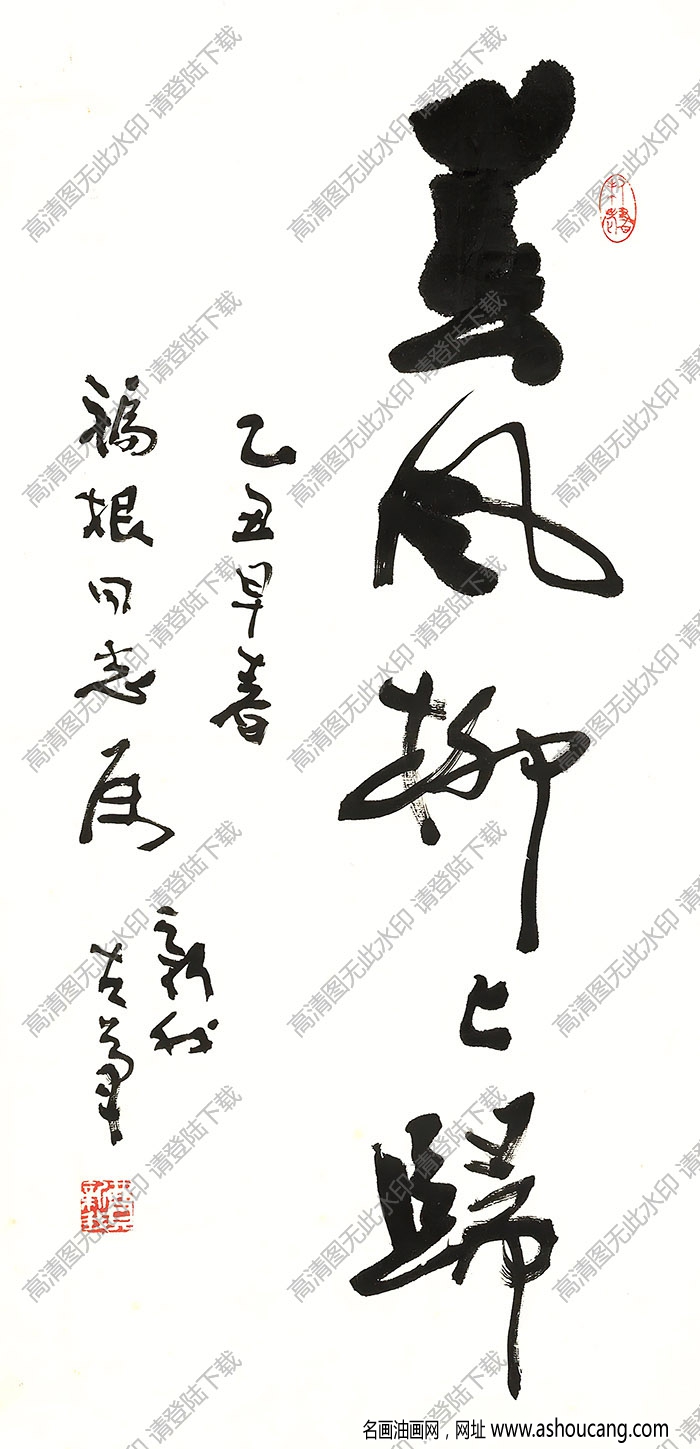 春风柳上歸
乙丑早春
福根同志属
新我
左筆
高清图无此水印 请登陆下载
名画油画网，网址 www.ashoucang.com